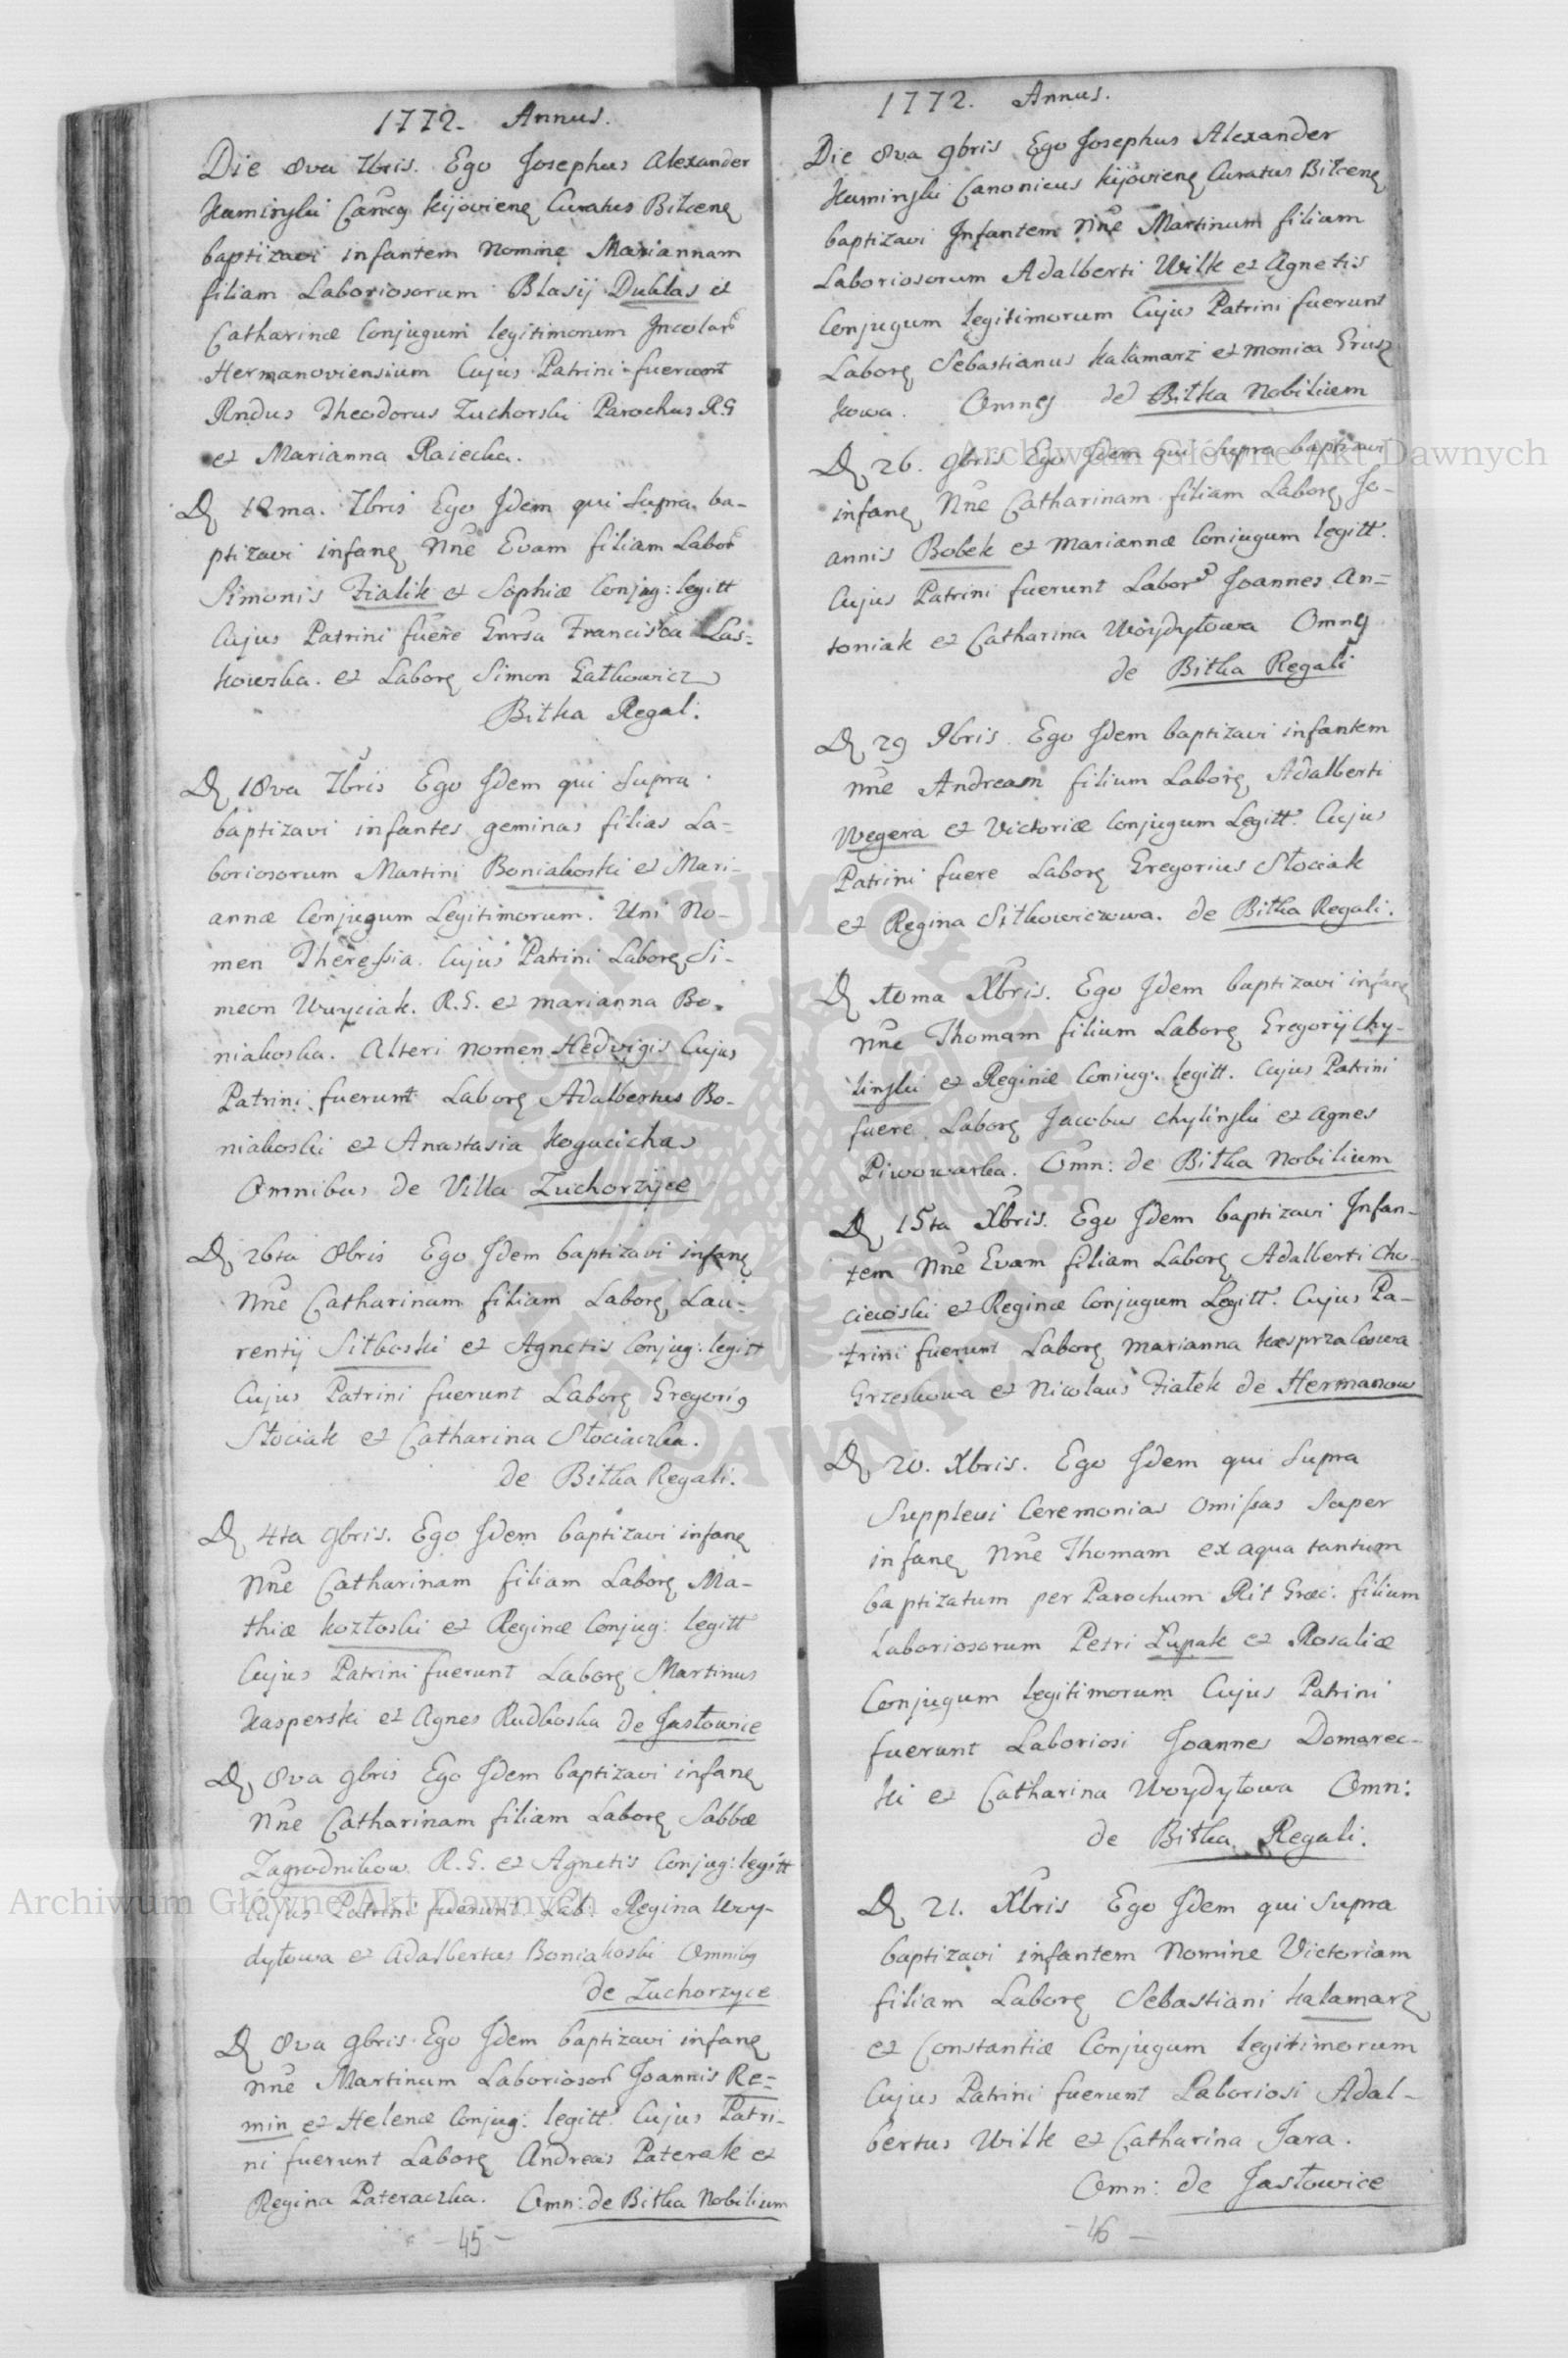 1772. Annus.
Die 8va 7bris. Ego Josephus Alexander
Kaminski Cancus Kijoviens Curatus Bilcens
baptizavi infantem Nomine Mariannam
filiam Laboriosorum Blasij Duklas et
Catharinæ Conjugum legitimorum Incolar
Hermanoviensium Cujus Patrini fuerunt
Rndus Theodorus Zuchorski Parochus R.G
et Marianna Raiecka.
D 12ma. 7bris Ego Idem qui Supra ba-
ptizavi infane Nne Evam filiam Labor
Simonis Fialik et Sophiæ Conjug: legitt
Cujus Patrini fuere Gnrsa Francisca Las=
kowska. et Labore Simon Gatkowicz
Bitka Regal:
D 18va 7bris Ego Idem qui Supra
baptizavi infantes geminas filias La=
boriosorum Martini Boniakoski et Mari-
annæ Conjugum Legitimorum. Uni No-
men Theressia. Cujus Patrini Labore Si-
meon Wuyciak. R.G. et Marianna Bo-
niakoska. Alteri nomen Hedvigis Cujus
Patrini fuerunt Labore Adalbertus Bo-
niakoski et Anastasia Kogucicha
Omnibus de Villa Zuchorzyce
D 26ta 8bris Ego Idem baptizavi infane
Nne Catharinam filiam Labore Lau=
rentij Sitkoski et Agnetis Conjug: legitt
Cujus Patrini fuerunt Labore Gregorig
Stociak et Catharina Stociaczka.
de Bitka Regali.
D 4ta 9bris. Ego Idem baptizavi infane
Nne Catharinam filiam Labore Ma-
thiæ Kozłoski et Reginæ Conjug: legitt
Cujus Patrini fuerunt Labore Martinus
Kasperski et Agnes Rudkoska de Jastowice
D 8va 9bris Ego Idem baptizavi infane
Nne Catharinam filiam Labore Sabbæ
Zagrodnikow R.G. et Agnetis Conjug: legitt
Cujus Patrini fuerunt Lab: Regina Woy-
dytowa et Adalbertus Boniakoski Omnibg
de Zuchorzyce
D 8va 9bris Ego Idem baptizavi infane
Nne Martinum Laborioson Joannis Re=
min et Helenæ Conjug: legitt. Cujus Patri-
ni fuerunt Labore Andreas Paterak et
Regina Pateraczka. Omn: de Bitka Nobilium
- 45 -
1772. Annus.
Die 8va 9bris Ego Josephus Alexander
Kaminski Canonicus Kijoviene Curatus Bilcene
baptizavi Infantem Nne Martinum filiam
Laboriosorum Adalberti Wilk et Agnetis
Conjugum legitimorum Cujus Patrini fuerunt
Labore Sebastianus Kalamarz et Monica Grusz
kowa. Omnes de Bitka Nobilium
D 26. 9bris Ego Idem qui Supra baptizavi
infane Nne Catharinam filiam Labore Jo-
annis Bobek et Mariannæ Coniugum legitt.
Cujus Patrini fuerunt Labor Joannes An=
toniak et Catharina Woydytowa Omng
de Bitka Regali
D 29 9bris Ego Idem baptizavi infantem
Nne Andream filium Labore Adalberti
Wegera et Victoriæ Conjugum Legitt. Cujus
Patrini fuere Labore Gregorius Stociak
et Regina Sitkowiczowa. de Bitka Regali.
D Xbris. Ego Idem baptizavi infane
Nne Thomam filium Labore Gregorij Chy-
linski et Reginæ Coniug: legitt. Cujus Patrini
fuere Labore Jacobus Chylinski et Agnes
Piwowarka. Omn: de Bitka Nobilium
D 15ta Xbris. Ego Idem baptizavi Infan-
tem Nne Evam filiam Labore Adalberti Cho-
cieioski et Reginæ Conjugum Legitt. Cujus Pa-
trini fuerunt Labore Marianna Kasprzakowa
Grzeskowa et Nicolaus Fiałek de Hermanow
D 20. Xbris. Ego Idem qui Supra
Supplevi Ceremonias Omissas Super
infane Nne Thomam ex aqua tantum
baptizatum per Parochum Rit Græc: filium
Laboriosorum Petri Łupak et Rosaliæ
Conjugum legitimorum Cujus Patrini
fuerunt Laboriosi Joannes Domarec-
ki et Catharina Woydytowa Omn:
de Bitka Regali.
D 21. Xbris Ego Idem qui Supra
baptizavi infantem Nomine Victoriam
filiam Labore Sebastiani Kalamarz
et Constantiæ Conjugum legitimorum
Cujus Patrini fuerunt Laboriosi Adal-
bertus Wilk et Catharina Jara.
Omn: de Jastowice
- 46 -
Archiwum Główne Akt Dawnych
Archiwum Główne Akt Dawnych